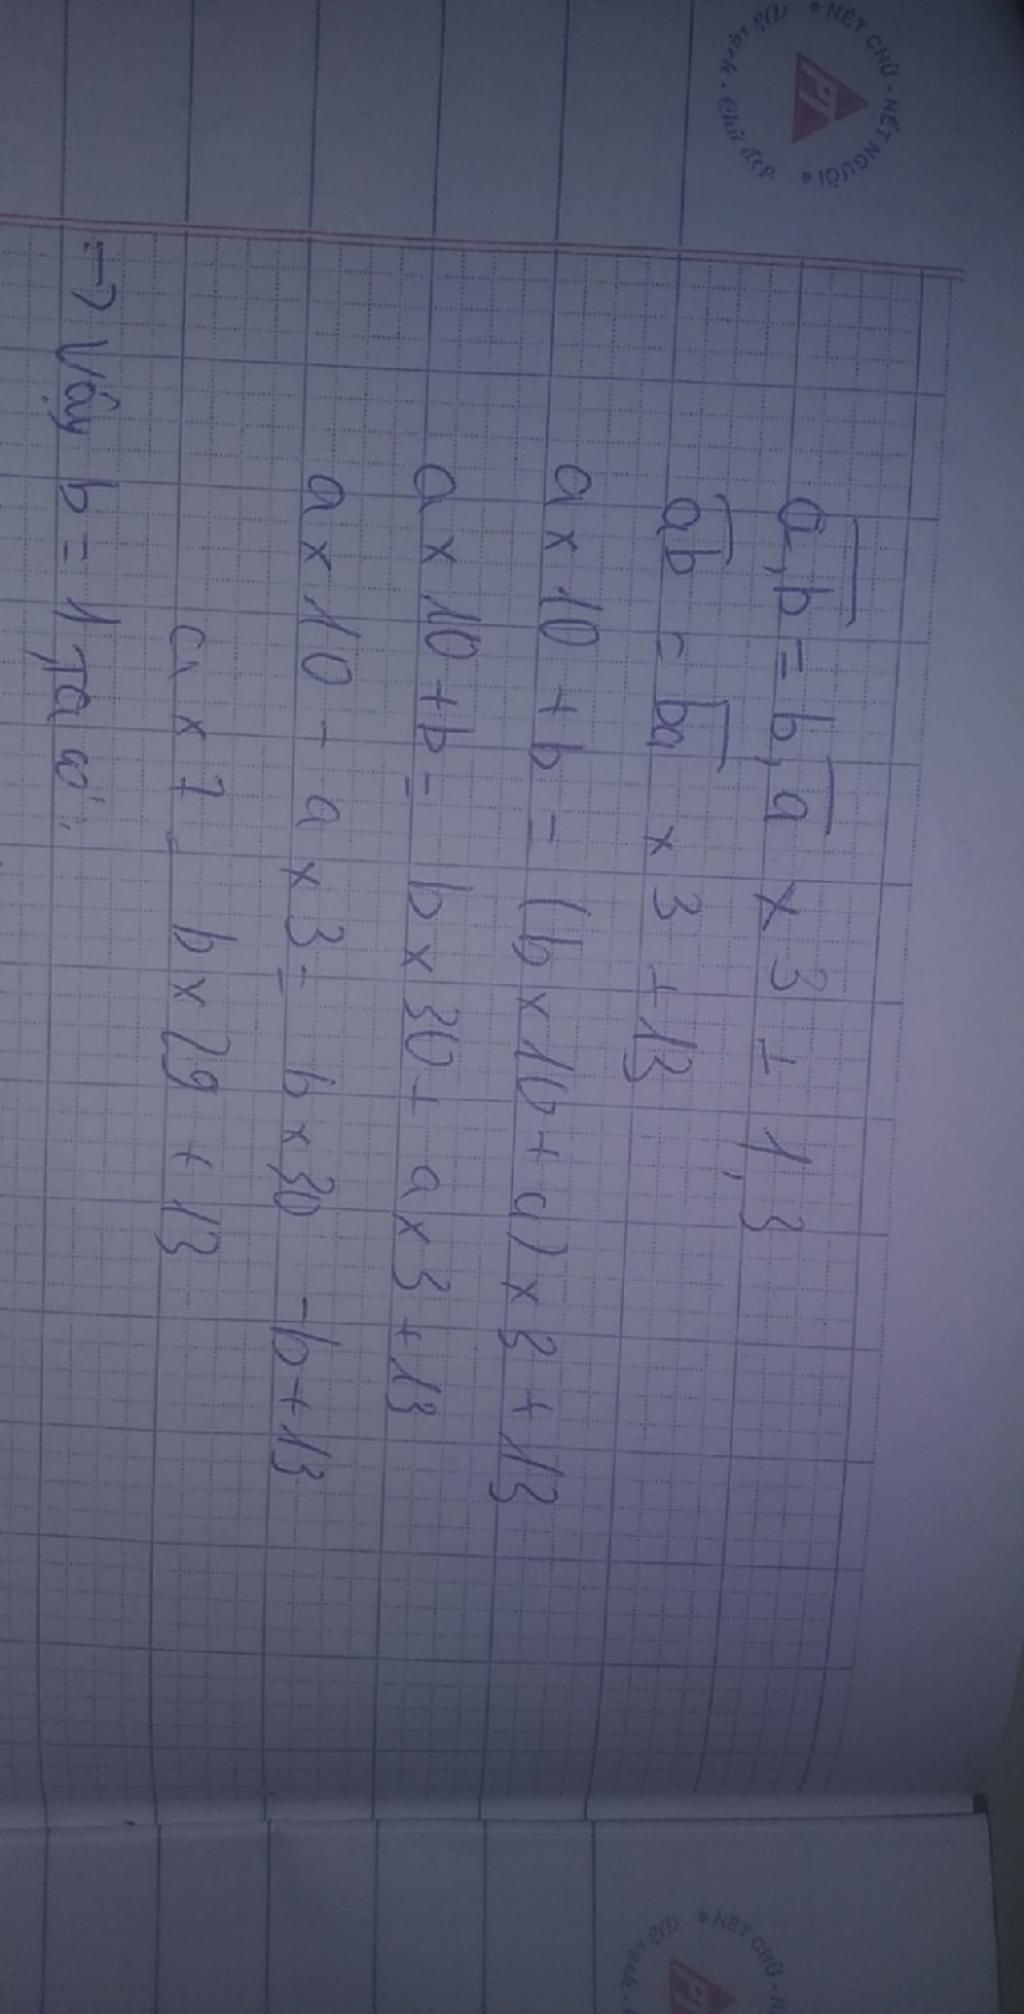 NÉT CHỮ - NẾT NGƯỜI
Vở sạch - Chữ đẹp
a,b = b,a x 3 + 1,3
ab = ba x 3 + 13
a x 10 + b = (b x 10 + a) x 3 + 13
a x 10 + b = b x 30 + a x 3 + 13
a x 10 - a x 3 = b x 30 - b + 13
a x 7 = b x 29 + 13
→ Vậy b = 1, Ta có:
NÉT CHỮ - N